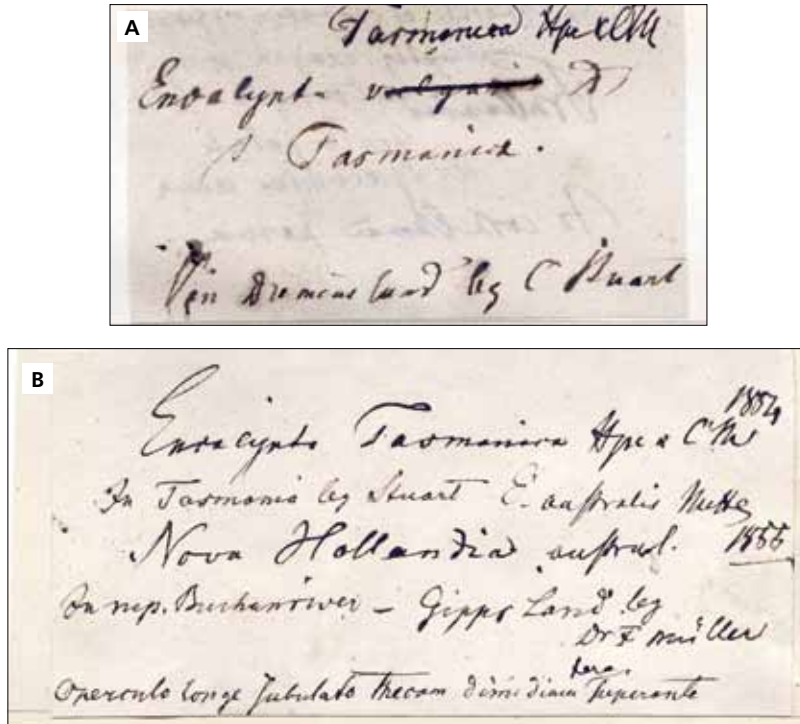 A
Tasmanica Hpe & CM
Encalypta vulgaris
Tasmanica.
Van Diemens land leg C Stuart
B
1854
Encalypta Tasmanica Hpe & C. M
In Tasmania leg Stuart E. australis
Nova Hollandia austral. 1855
Gipps Land leg
Dr F Müller
operculo longe subulato thecam dimidiam superante